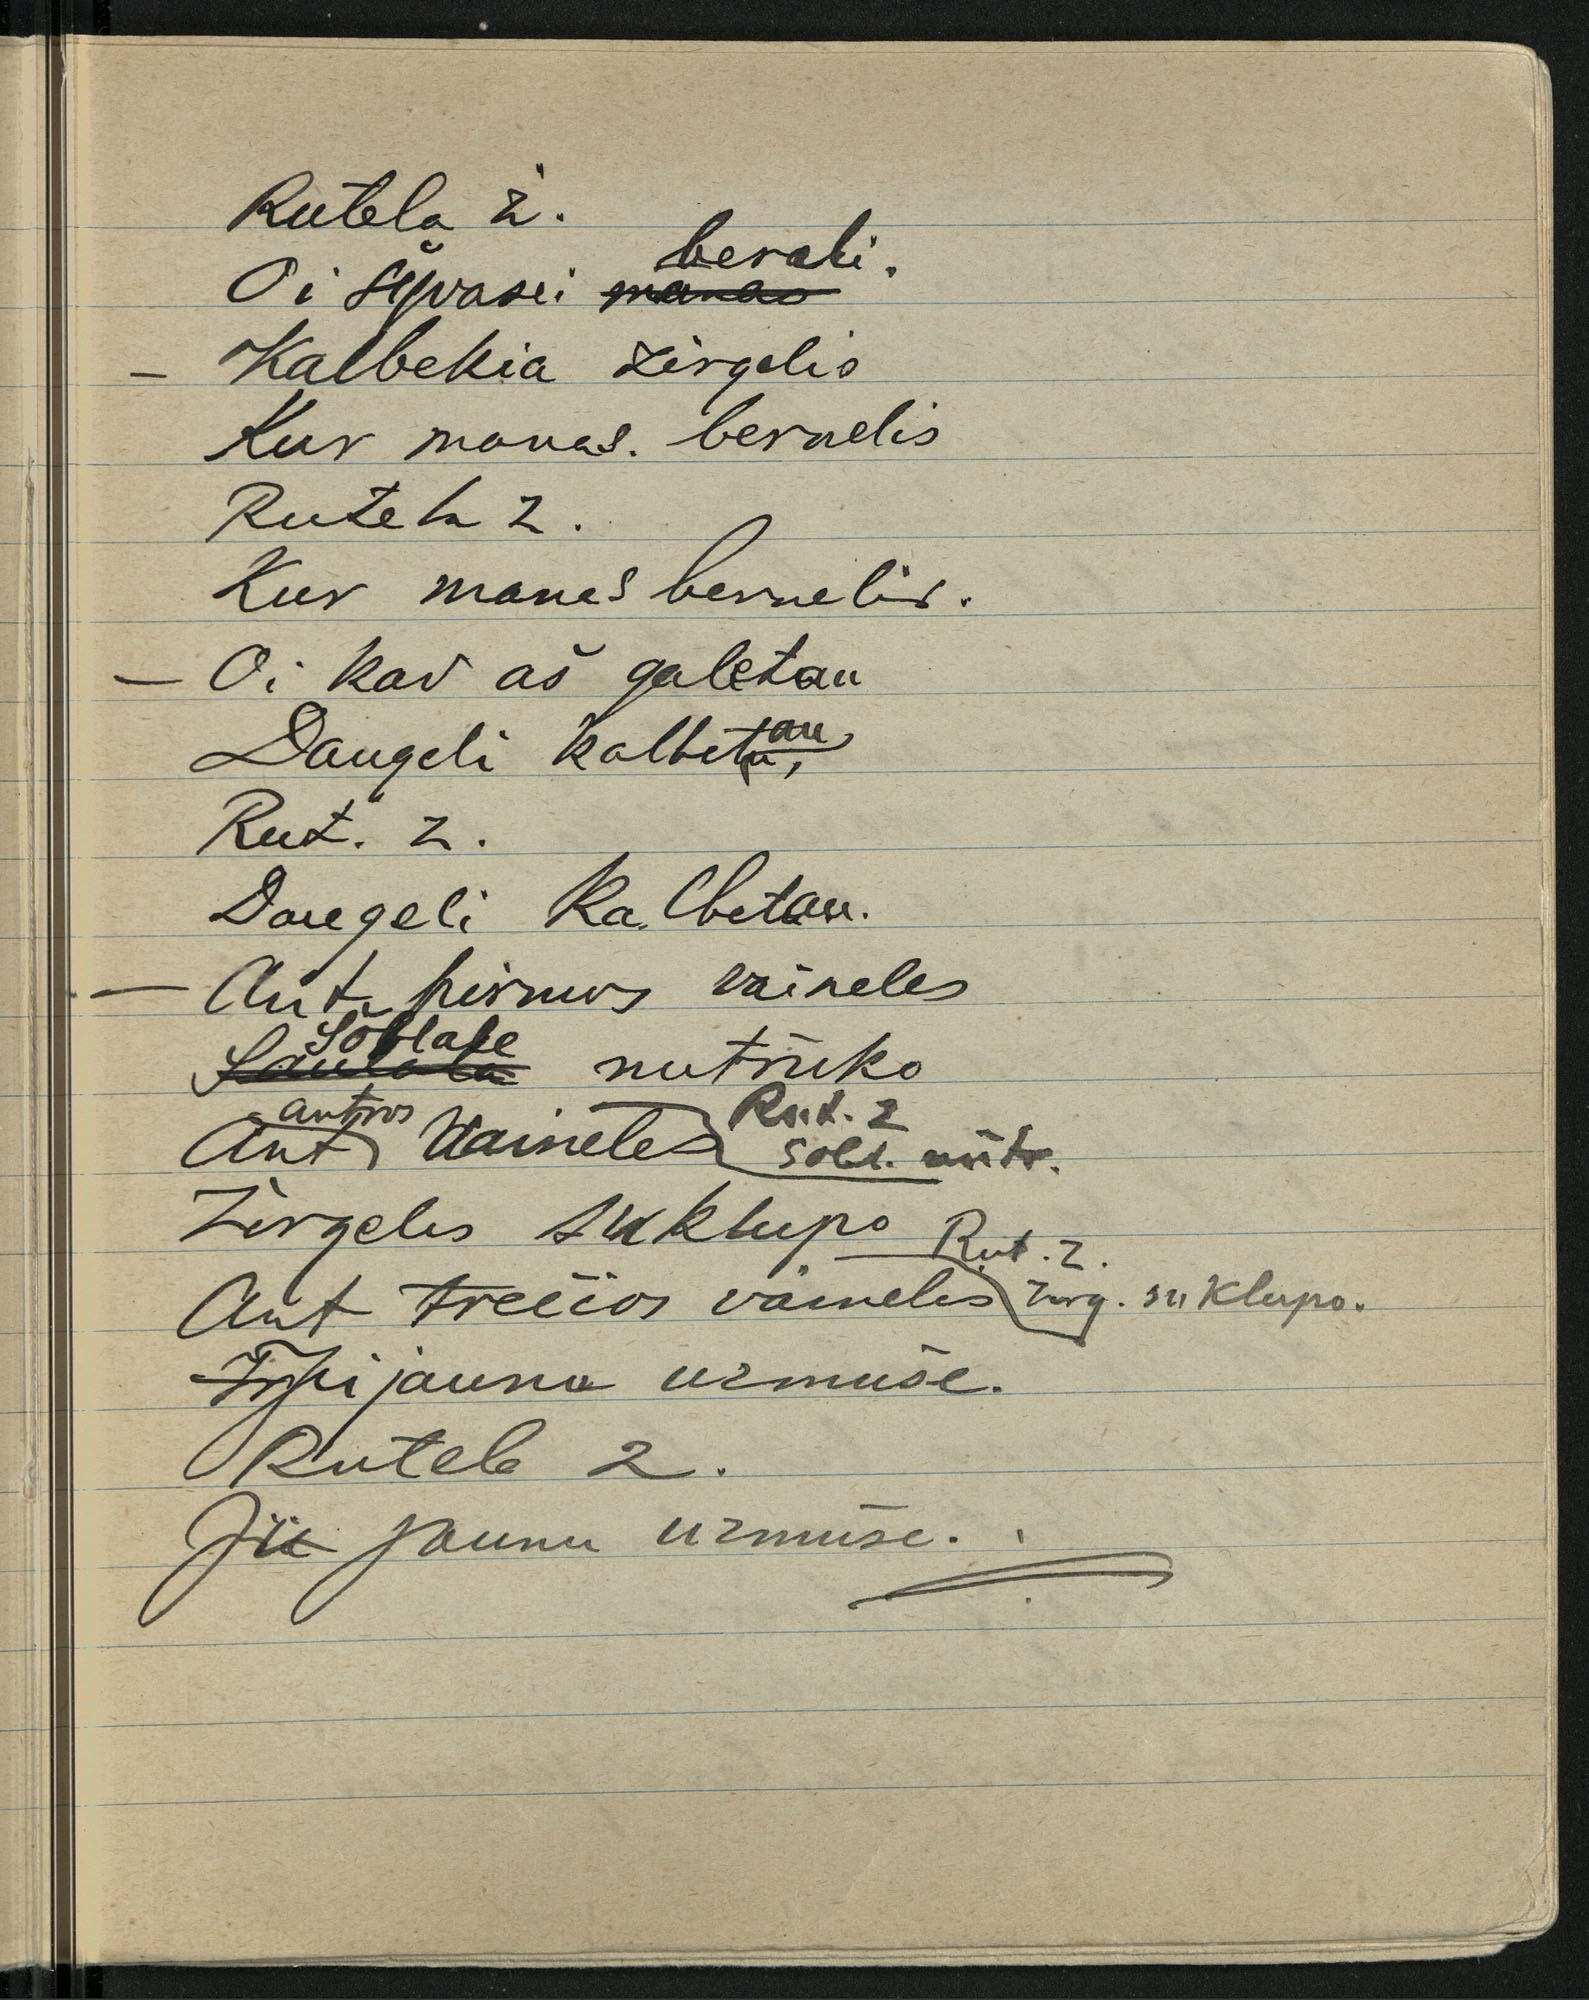 Rutela ž.
Oi šyvasei manao berali.
– Kalbekia žirgelis
Kur manas. bernelis
Rutela z.
Kur manas bernelis.
– Oi kad aš galetau
Daugeli kalbetau,
Rut. z.
Daugeli kalbetau.
– Ant pirmos vaineles
Soblale nutrūko
Ant antros Vaineles
Rut. z
sobl. nūtr.
Žirgelis suklupo
Rut. z.
Ant trečios vaineles žirg. suklupo.
jauna uzmuše.
Rutela z.
Jii jaunu uzmuše.